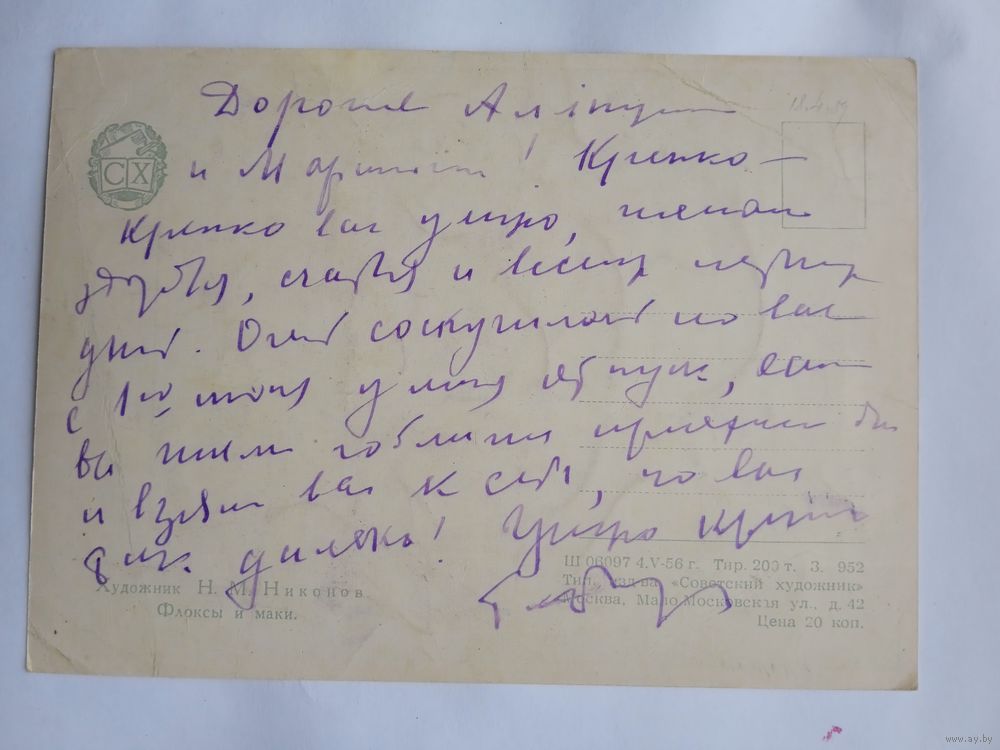 Дорогие
и Крепко-
крепко вас целую, желаю
здоровья, счастья и весны
дней. Очень соскучилась по вас
с 1го у меня отпуск, если
вы жили поближе приехала бы
и взяла вас к себе, но вы
так далеко! Целую крепко
СХ
Художник Н. М. Никонов
Флоксы и маки.
Ш 06097 4.V-56 г. Тир. 200 т. З. 952
Тип. изд-ва «Советский художник»
Москва, Мало-Московская ул., д. 42
Цена 20 коп.
www.ay.by